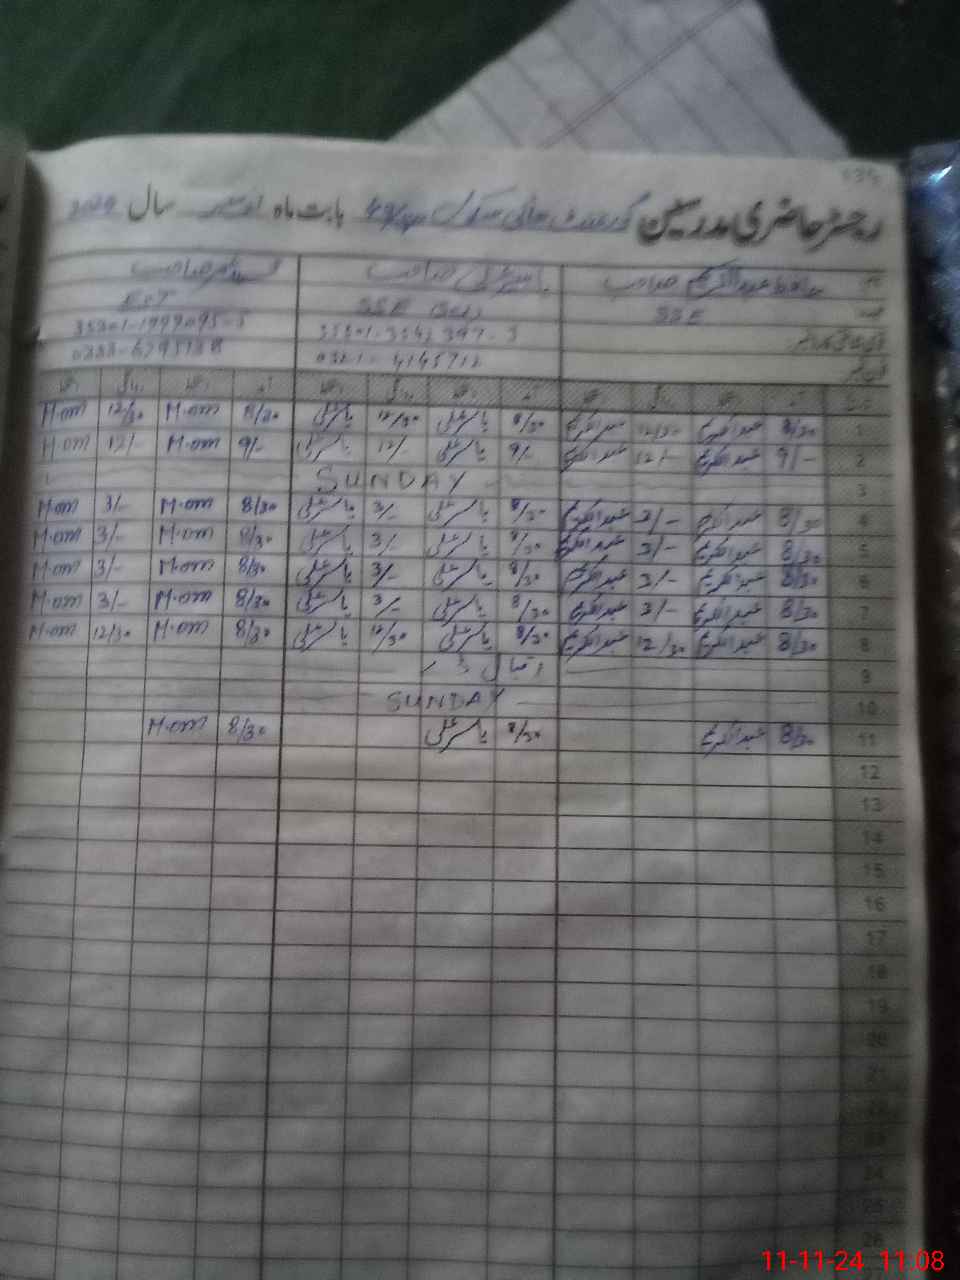 رجسٹر حاضری مدرسین گورنمنٹ ہائی سکول بابت ماہ نومبر سال 2024
نام حافظ عبدالکریم صاحب یاسر علی صاحب صاحب
عہدہ SSE SSE EST
آمد دستخط روانگی دستخط آمد دستخط روانگی دستخط آمد دستخط روانگی دستخط
1 8/30 عبدالکریم 12/30 عبدالکریم 8/30 یاسر علی 12/30 یاسر علی 8/30 M.om 12/30 M.om
2 9/- عبدالکریم 12/- عبدالکریم 9/- یاسر علی 12/- یاسر علی 9/- M.om 12/- M.om
3 SUNDAY
4 8/30 عبدالکریم 3/- عبدالکریم 8/30 یاسر علی 3/- یاسر علی 8/30 M.om 3/- M.om
5 8/30 عبدالکریم 3/- عبدالکریم 8/30 یاسر علی 3/- یاسر علی 8/30 M.om 3/- M.om
6 8/30 عبدالکریم 3/- عبدالکریم 8/30 یاسر علی 3/- یاسر علی 8/30 M.om 3/- M.om
7 8/30 عبدالکریم 3/- عبدالکریم 8/30 یاسر علی 3/- یاسر علی 8/30 M.om 3/- M.om
8 8/30 عبدالکریم 12/30 عبدالکریم 8/30 یاسر علی 12/30 یاسر علی 8/30 M.om 12/30 M.om
9 اقبال ڈے
10 SUNDAY
11 8/30 عبدالکریم 8/30 یاسر علی 8/30 M.om
12
13
14
15
16
17
18
19
20
21
22
23
24
25
26
11-11-24 11:08